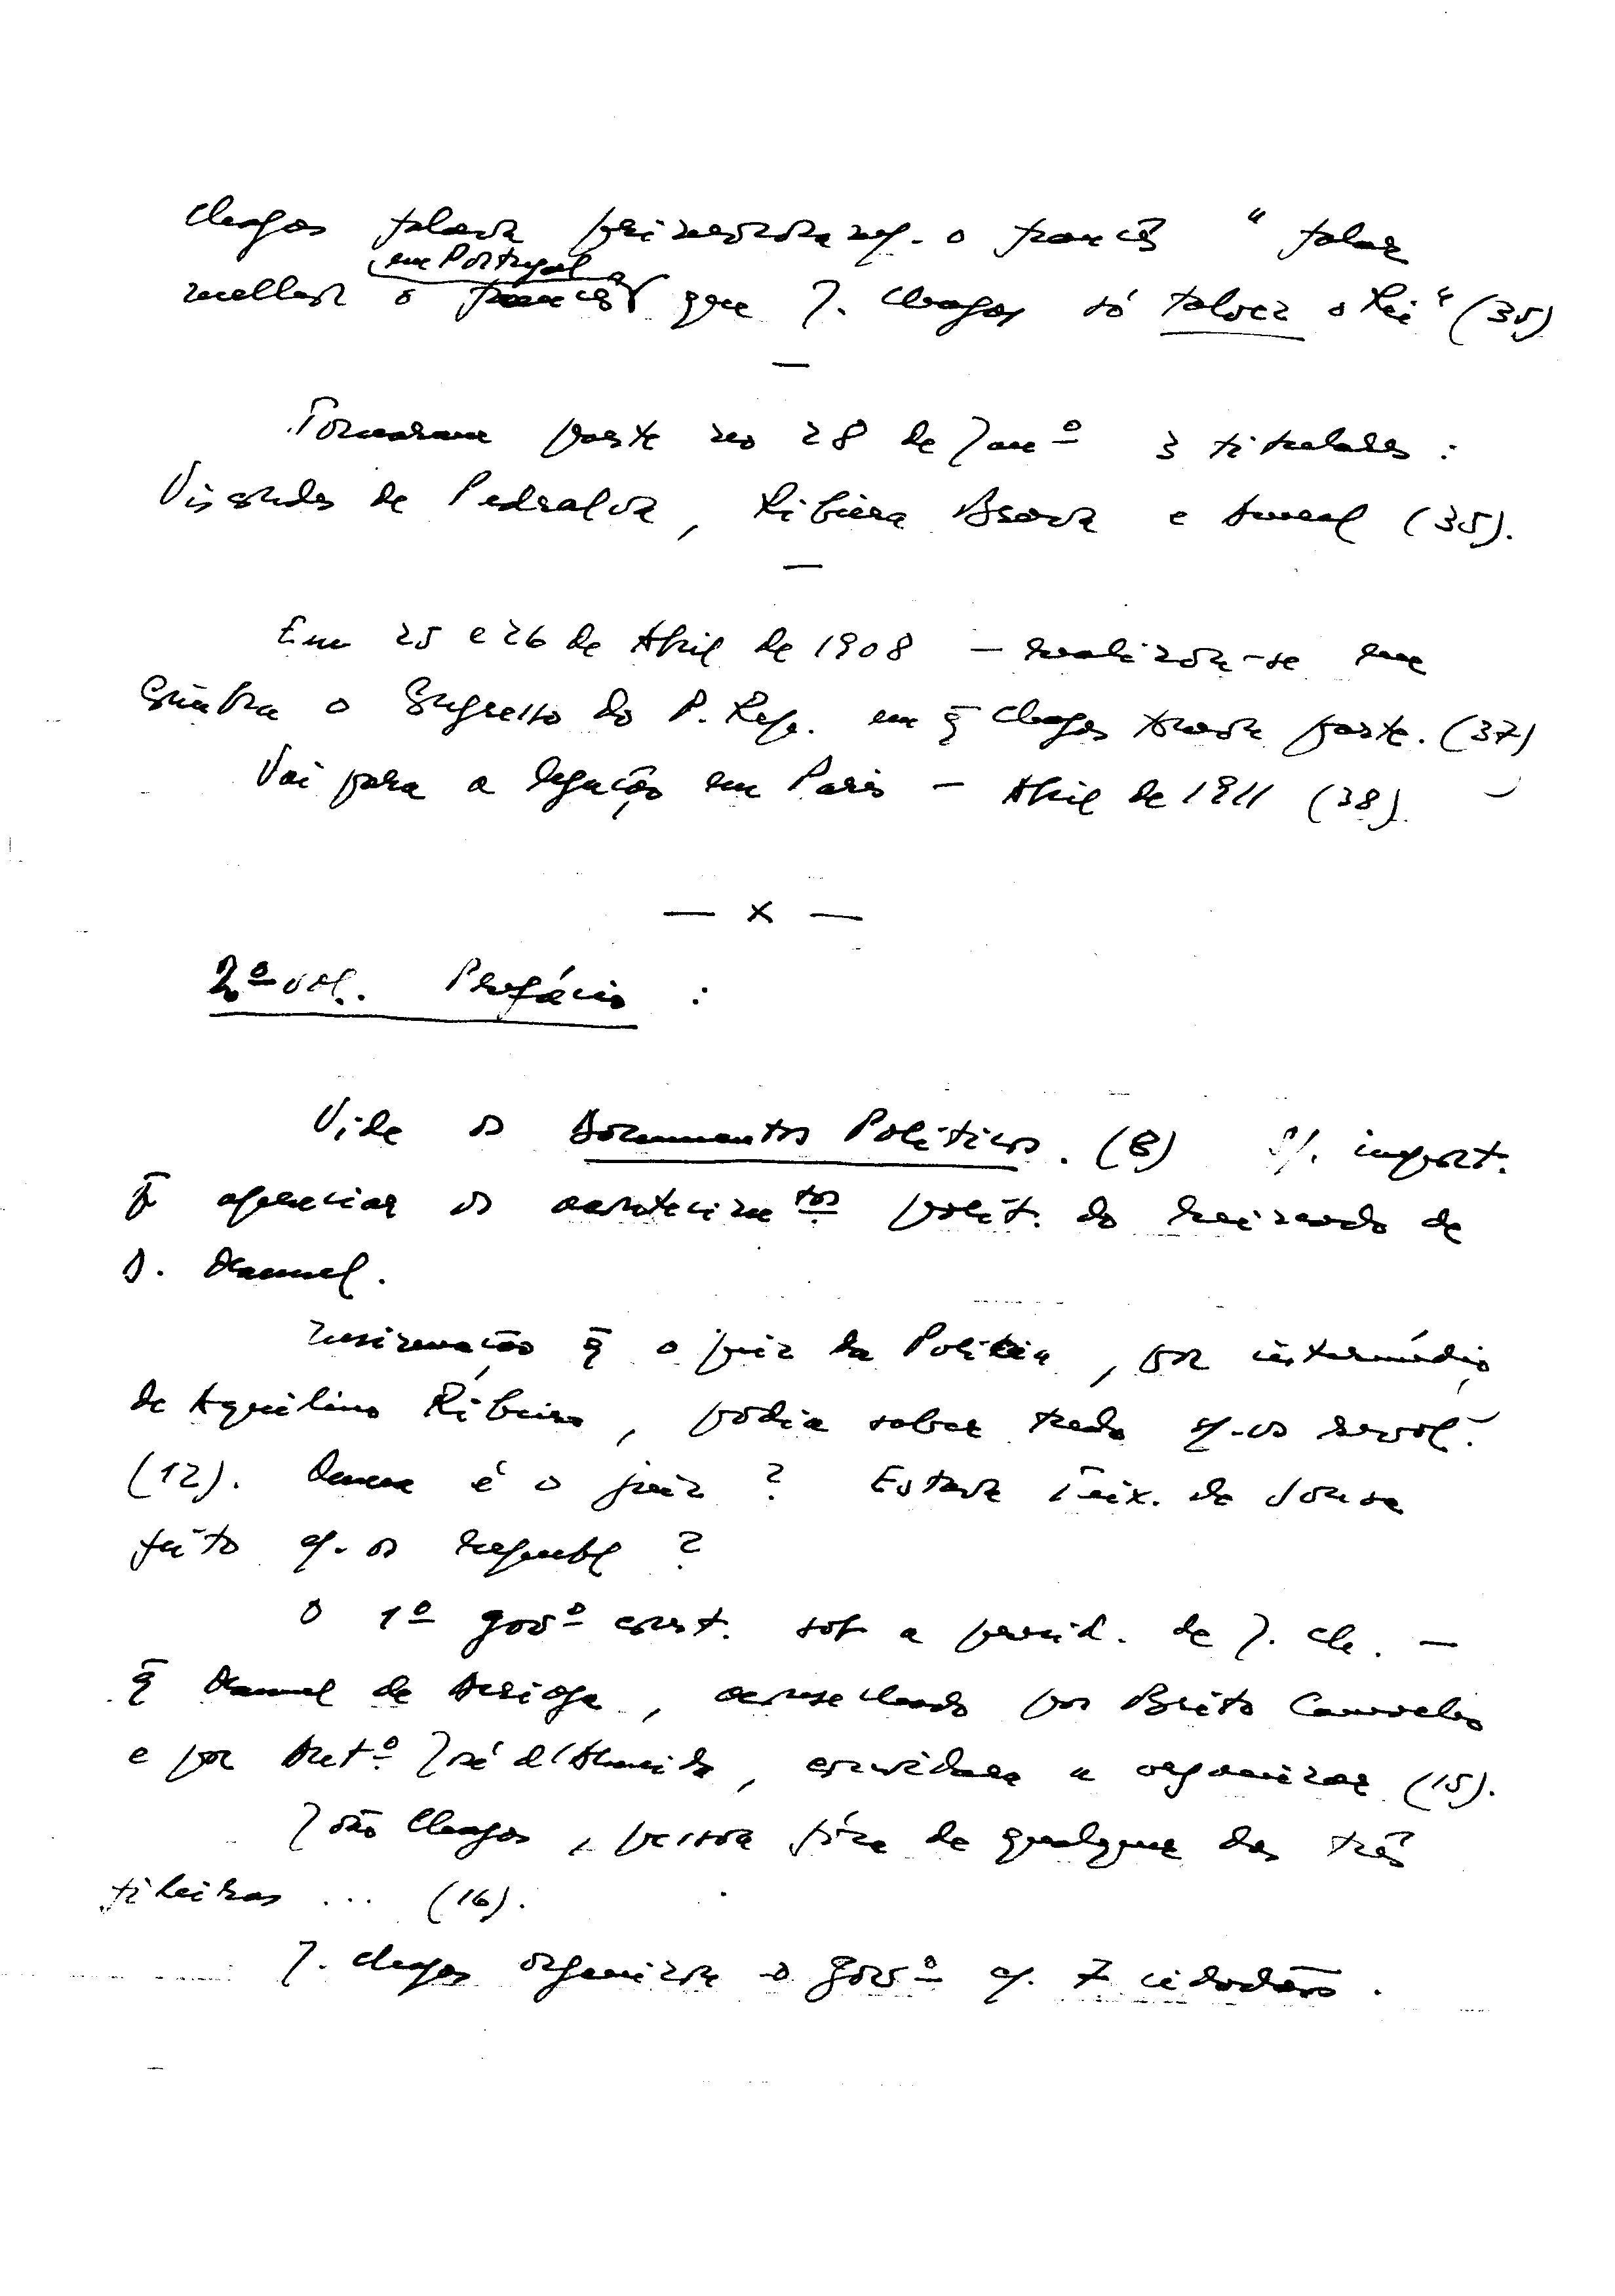 Chagas falava primorosam. o francês "falar
em Portugal
melhor o francês que J. Chagas só talvez o Rei" (35)
—
Tomaram parte no 28 de Janº 3 titulares :
Viscondes de Pedralva, Ribeira Brava e Ameal (35).
—
Em 25 e 26 de Abril de 1908 — realizou-se em
Coimbra o Congresso do P. Rep. em q̄ Chagas tomou parte. (37)
Vai para a legação em Paris — Abril de 1911 (38).
— x —
2º vol. Prefácio :
Vide os Documentos Políticos. (8) import.
p̄ apreciar os acontecimtos polít. do reinado de
D. Manuel.
Insinuação q̄ o juiz da Polícia, por intermédio
de Aquilino Ribeiro, podia saber tudo c/. os revol.
(12). Quem é o juiz ? Estava Teix. de Sousa
feito c/. os republ ?
O 1º govº const. sob a presid. de J. Ch. —
q̄ Manuel de Arriaga, aconselhado por Brito Camacho
e por Antº José d'Almeida, convidara a organizar (15).
João Chagas, pessoa fóra de qualquer das três
fileiras ... (16).
J. Chagas organizou o govº c/. 7 cidadãos.